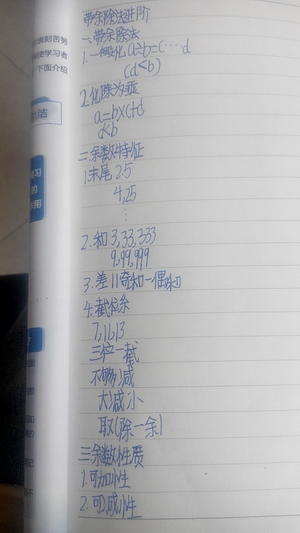 带余除法进阶
一.带余除法
1.一般化 a÷b=c…d
(d<b)
2.化除为乘
a=b×c+d
d<b
二.余数特征
1.末尾 2.5
4,25
⋮
2.和 3,33,333
9,99,999
3.差 11奇和-偶和
4.截
7,11,13
三位一截
不够减
大减小
取(除-余)
三余数性质
1.可加性
2.可减性
表刻苦努
使学习者
下面介绍
结
习
的
用